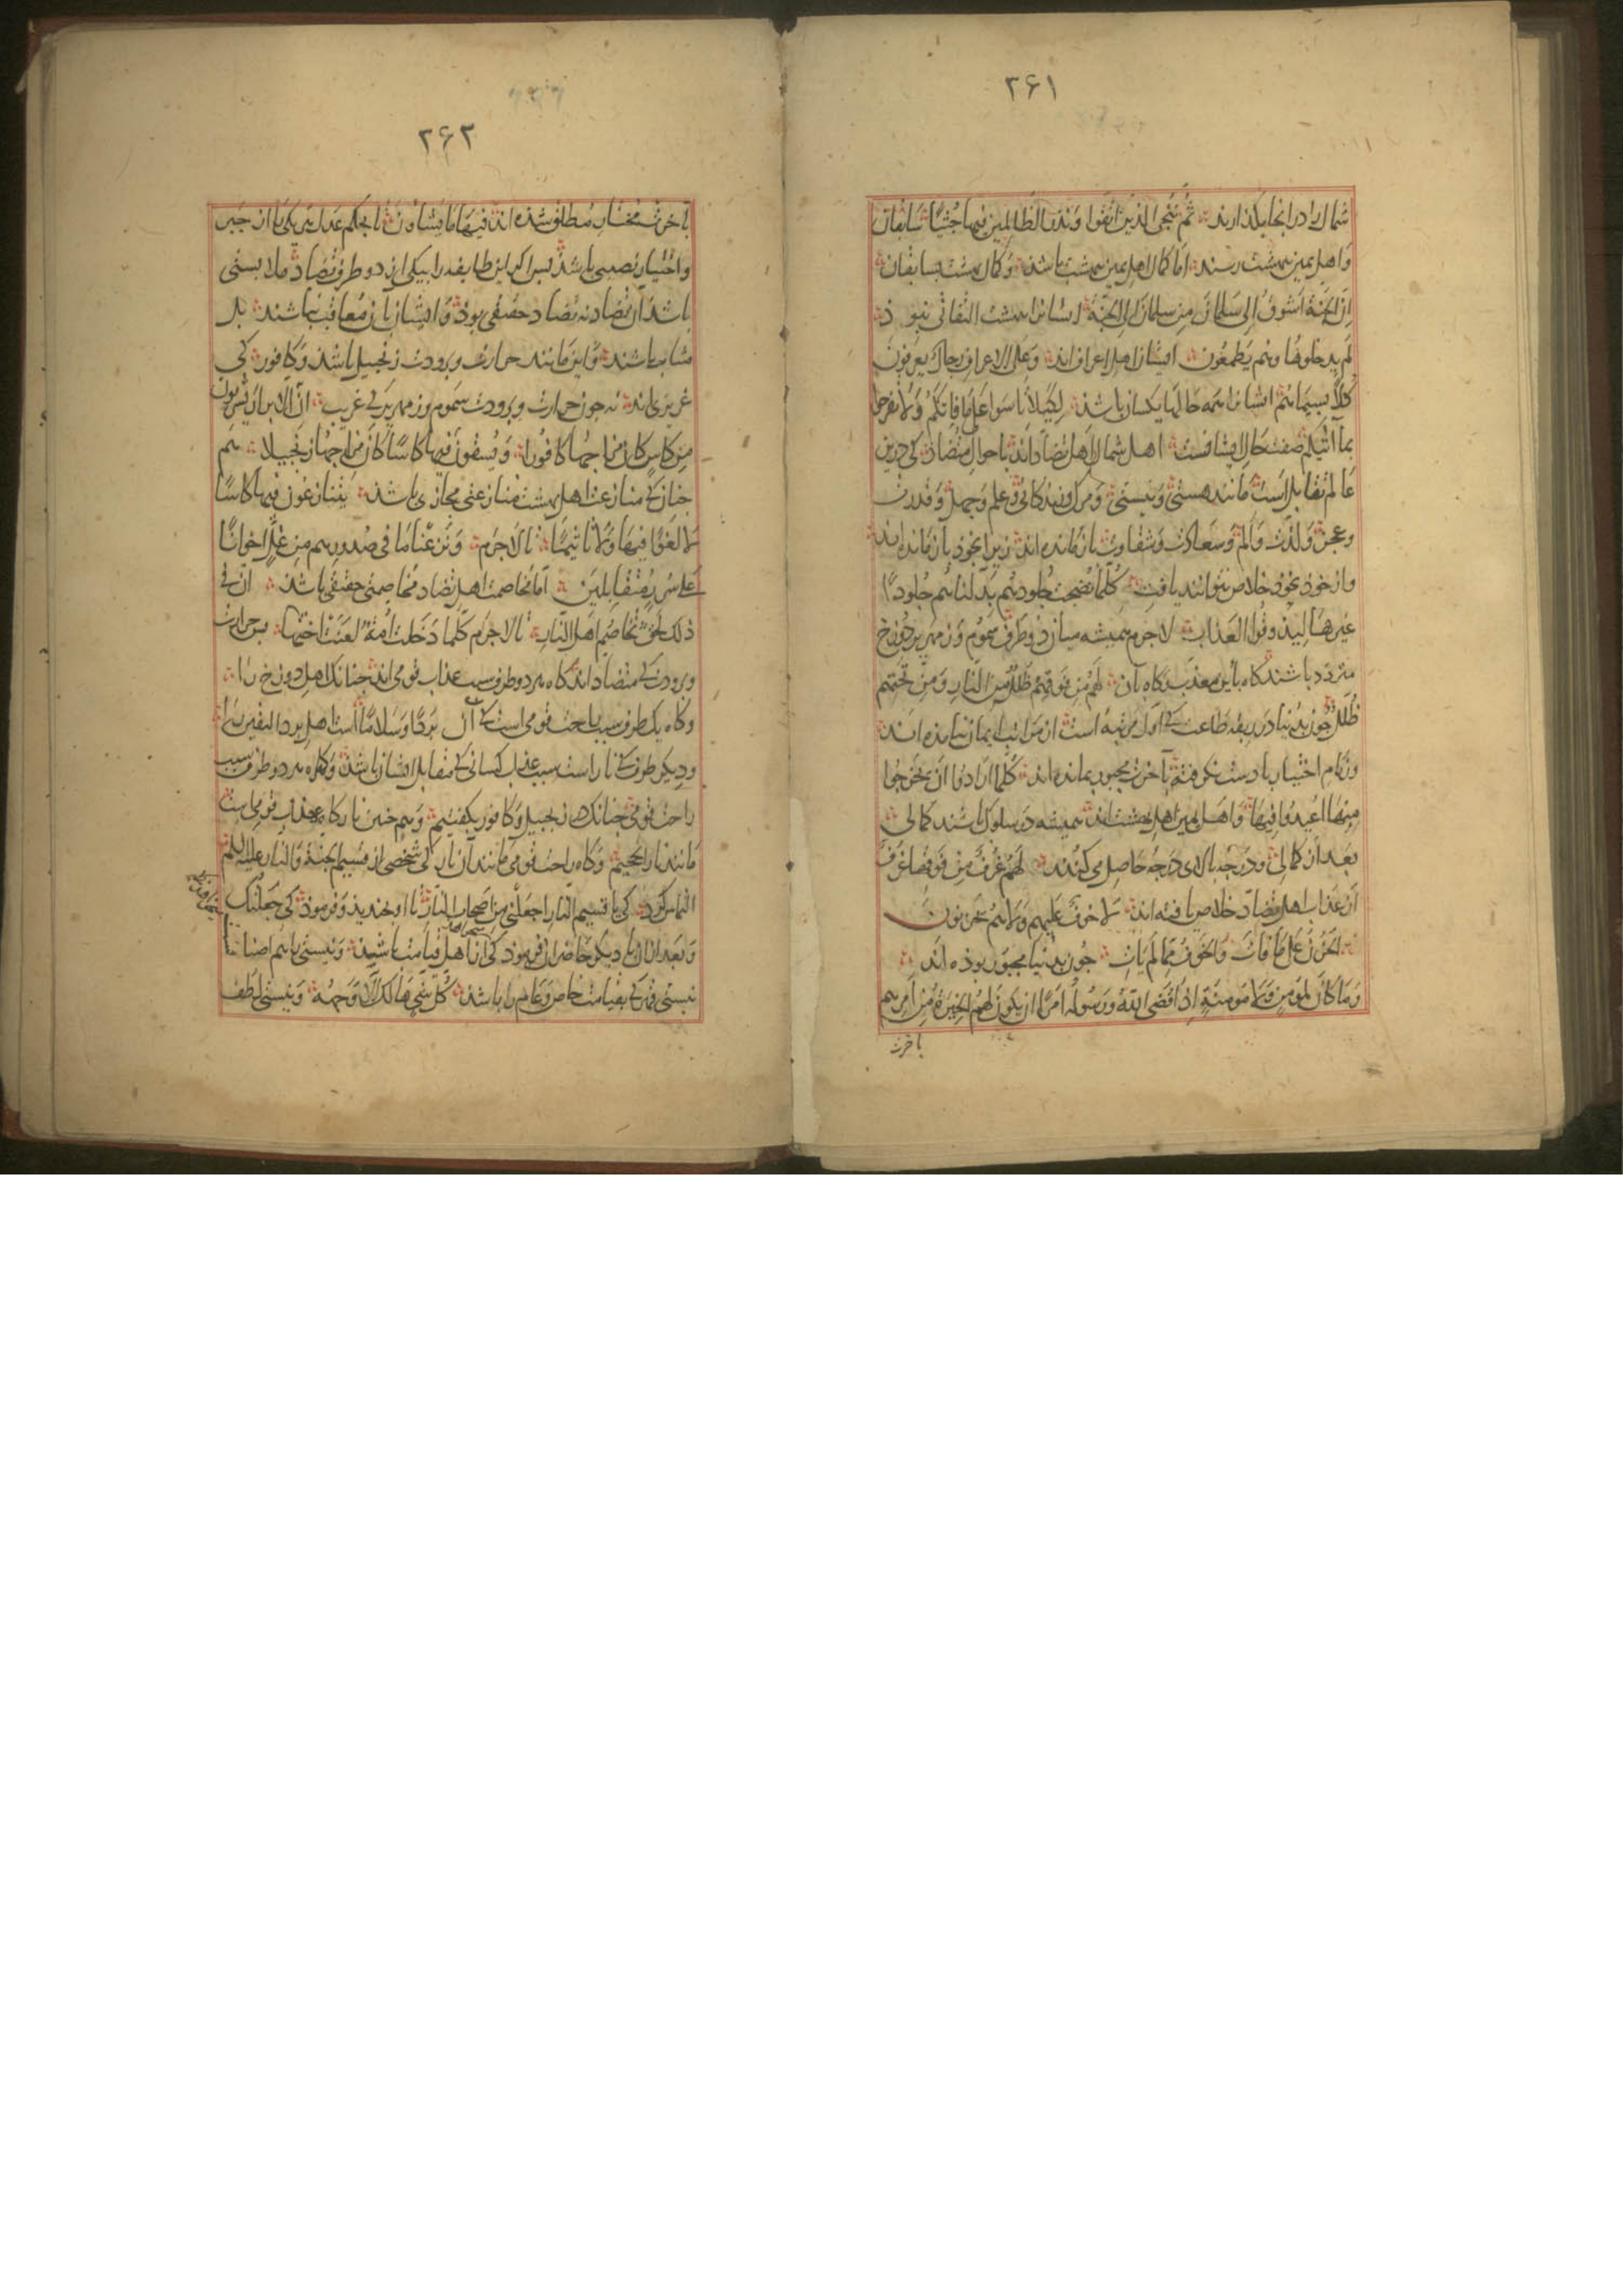 ۲۶۱
شمال را در انجا بكذارند ثُمَّ نُنَجّى الَّذينَ اتَّقَوا وَنَذَرُ الظّالِمينَ فيها جُثِيًّا سابقان
و اهل يمين ببهشت رسند اما كمال اهل يمين ببهشت باشد و كمال بهشت بسابقان
اِنَّ الجَنَّةَ اَشوَقُ اِلى سَلمانَ مِن سَلمانَ اِلى الجَنَّةِ ايشانرا ببهشت التفاتى نبوذ
لَم يَدخُلوها وَهُم يَطمَعُونَ ايشان اهل اعراف اند وَعَلَى الاَعرافِ رِجالٌ يَعرِفُونَ
كُلاًّ بِسيماهُم ايشانرا همه حالها يكسان باشد لِكَيلا تَاسَوا عَلى ما فاتَكُم وَلا تَفرَحُوا
بِما اتيكُم صفت حال ايشانست اهل شمال اهل تضاد اند باحوال متضاد كى درين
عالم تقابل است مانند هستى و نيستى و مرك و زندكانى و علم و جهل و قدرت
و عجز و لذت و الم و سعادت و شقاوت باز مانده اند زيرا بخوذ باز مانده اند
و از خوذ بخوذ خلاص نتوانند يافت كُلَّما نَضِجَت جُلُودُهُم بَدَّلناهُم جُلُودًا
غَيرَها لِيَذُوقُوا العَذابَ لاجرم هميشه ميان دو طرف سموم و زمهرير دوزخ
متردد باشند كاه باين معذب و كاه بآن لَهُم مِن فَوقِهِم ظُلَلٌ مِنَ النّارِ وَمِن تَحتِهِم
ظُلَلٌ چون بدنيا در ربقه طاعت كى اول مرتبه است از مراتب ايمان نيامذه اند
و زمام اختيار با دست نكرفته بآخرت مجبور بمانده اند كُلَّما اَرادُوا اَن يَخرُجُوا
مِنها اُعيدُوا فيها و اهل يمين اهل بهشت اند هميشه در سلوك باشند كمالى
بعد از كمالى و درجه بالاى درجه حاصل مى كنند لَهُم غُرَفٌ مِن فَوقِها غُرَفٌ
از عذاب اهل تضاد خلاص يافته اند لا خَوفٌ عَلَيهِم وَلا هُم يَحزَنُونَ
الحُزنُ عَلى ما فاتَ وَالخَوفُ مِمّا لَم يَاتِ چون بدنيا مجبور بوذه اند
وَما كانَ لِمُؤمِنٍ وَلا مُؤمِنَةٍ اِذا قَضَى اللهُ وَرَسُولُهُ اَمرًا اَن يَكُونَ لَهُمُ الخِيَرَةُ مِن اَمرِهِم
باخرت
۲۶۲
باخرت مختار مطلق شذه اند فيها ما يَشاؤُنَ تا بحكم عدل هر يكى را از جبر
و اختيار نصيبى باشد پس اكر اين طايفه را بيكى از دو طرف تضاد ملابستى
باشد آن تضاد نه تضاد حقيقى بوذ و ايشان بآن معاقب نباشند بل
مثاب باشند و اين مانند حرارت و برودت زنجبيل باشذ و كافور كى
غريزى اند نه چون حرارت و برودت سموم و زمهرير كى غريب اِنَّ الاَبرارَ يَشرَبُونَ
مِن كاسٍ كانَ مِزاجُها كافُورًا وَيُسقَونَ فيها كاسًا كانَ مِزاجُها زَنجَبيلا هم
چنانك منازعت اهل بهشت منازعتى مجازى باشد يَتَنازَعُونَ فيها كاسًا
لا لَغوٌ فيها وَلا تَاثيمٌ تا لاجرم وَنَزَعنا ما فى صُدُورِهِم مِن غِلٍّ اِخوانًا
عَلى سُرُرٍ مُتَقابِلينَ اما مخاصمت اهل تضاد مخاصمتى حقيقى باشذ اِنَّ
ذلِكَ لَحَقٌّ تَخاصُمُ اَهلِ النّارِ تا لاجرم كُلَّما دَخَلَت اُمَّةٌ لَعَنَت اُختَها پس حرارت
و برودت كى متضاد اند كاه هر دو طرف سبب عذاب قومى اند چنانك اهل دوزخ را
و كاه يك طرف سبب راحت قومى است كى آن بَردًا وَسَلامًا است اهل برد اليقين را
و ديكر طرف كى نار است سبب عذاب كسانى كى مقابل ايشان باشند و كاه هر دو طرف سبب
راحت قومى چنانك در زنجبيل و كافور بكفتيم و هم چنين نار كاه عذاب قومى است
مانند نار الجحيم و كاه راحت قومى مانند آن نار كى شخصى از قسيم الجنة و النار عليه السلم
التماس كرد كى يا قَسيمَ النّارِ اجعَلنى مِن اَصحابِ النّارِ تا او بخنديذ و فرموذ كى جَعَلتُكَ
و بعد از ان با ديكر حاضران فرموذ كى از اهل قيامت باشيد و نيستى باهم اصنا
نيستى قهر كى بقيامت خاص و عام را باشذ كُلُّ شَىءٍ هالِكٌ اِلاّ وَجهَهُ و نيستى لطف